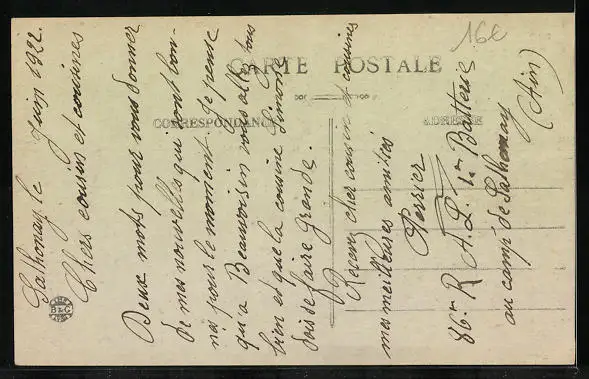 16€
CARTE POSTALE
CORRESPONDANCE
ADRESSE
Sathonay le Juin 1922.
Chers cousin et cousines
Deux mots pour vous donner
de mes nouvelles qui sont bon-
nes pour le moment. Je pense
qu'à Beauvoisin vous allez tous
bien et que la cousine Simone
dois se faire grande.
Recevez cher cousin et cousines
mes meilleures amitiés
Perrier
86me R A. L. 1re Batterie
au camp de Sathonay
(Ain)
B&G